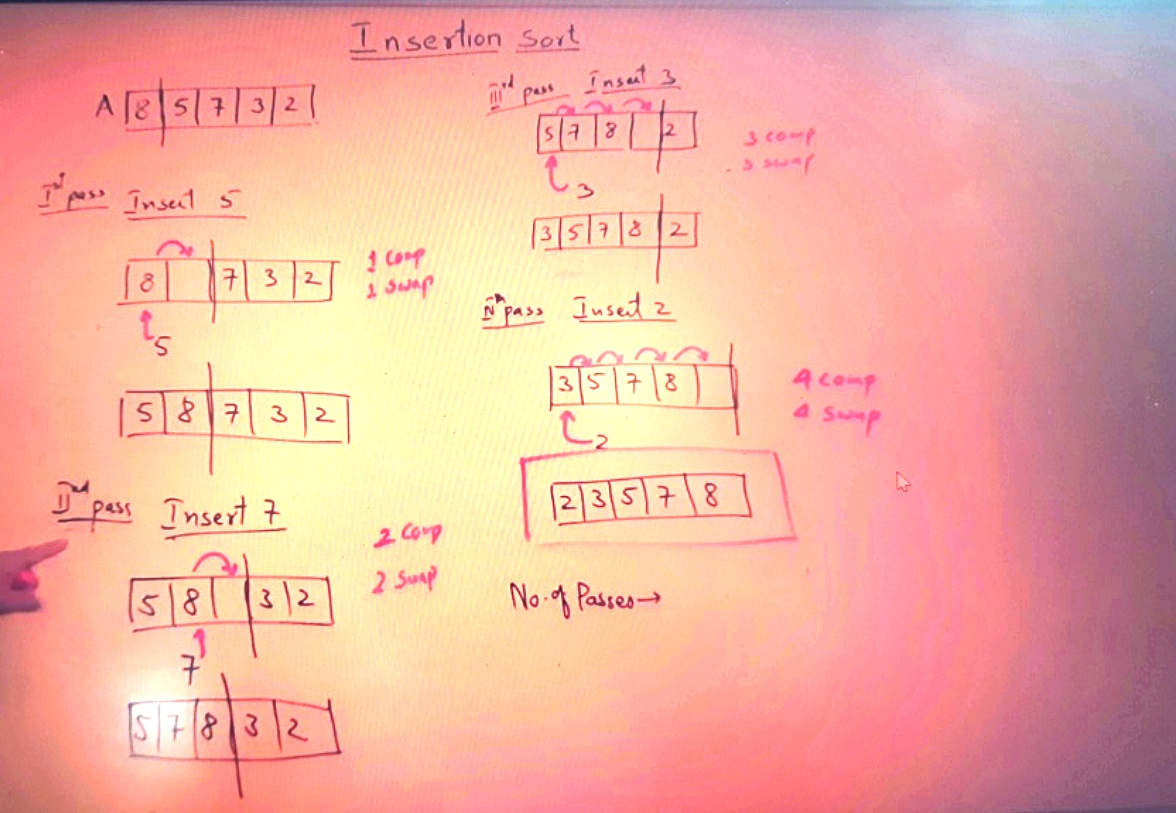 Insertion Sort
A 8 5 7 3 2
Ist pass Insert 5
8 7 3 2
5
1 comp
1 swap
5 8 7 3 2
IInd pass Insert 7
2 comp
2 swap
5 8 3 2
7
5 7 8 3 2
IIIrd pass Insert 3
5 7 8 2
3
3 comp
3 swap
3 5 7 8 2
IVth pass Insert 2
3 5 7 8
2
4 comp
4 swap
2 3 5 7 8
No. of Passes→